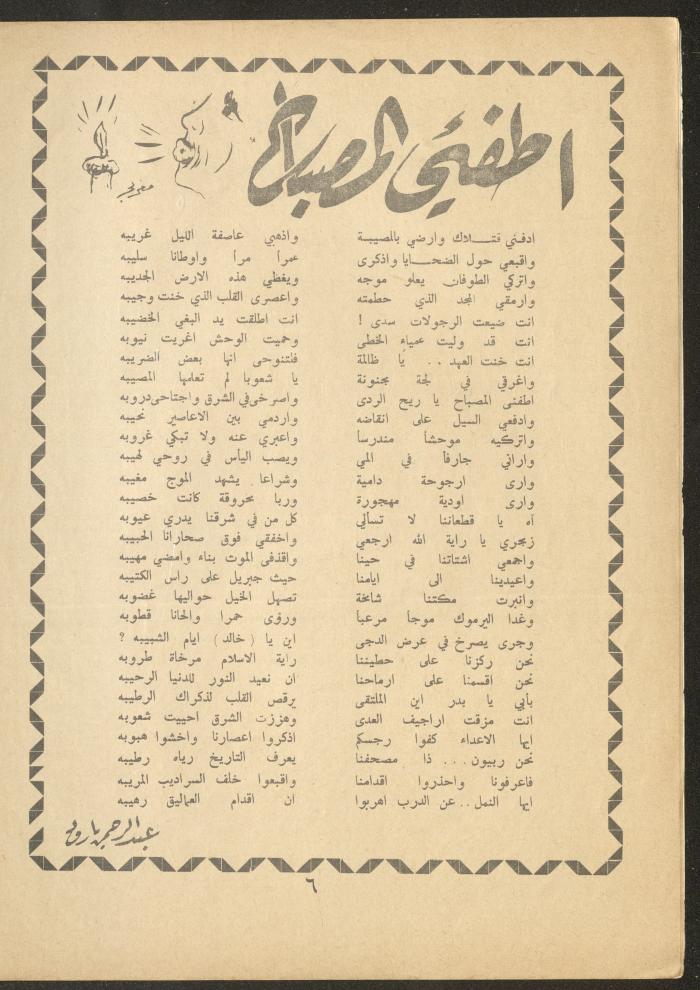 اطفئي المصباح
ادفني قتـــلاك وارضي بالمصيبة واذهبي عاصفة الليل غريبه
واقبعي حول الضحـــايا واذكرى عمراً مراً واوطانا سليبه
واتركي الطوفان يعلو موجه ويغطي هذه الارض الجديبه
وارمقي المجد الذي حطمته واعصرى القلب الذي خنت وجيبه
انت ضيعت الرجولات سدى ! انت اطلقت يد البغي الخضيبه
انت قد وليت عمياء الخطى وحميت الوحش اغريت نيوبه
انت خنت العهد .. يا ظالمة فلتنوحي انها بعض الضريبه
واغرقي في لجة مجنونة يا شعوبا لم تعلمها المصيبه
اطفئى المصباح يا ريح الردى واصرخى في الشرق واجتاحى دروبه
وادفعي السيل على انقاضه واردمي بين الاعاصير نحيبه
واتركيه موحشاً مندرساً واعبري عنه ولا تبكي غروبه
واراني جارفاً في المي ويصب اليأس في روحي لهيبه
وارى ارجوحة دامية وشراعا يشهد الموج مغيبه
وارى اودية مهجورة وربا محروقة كانت خصيبه
اه يا قطعاننا لا تسألي كل من في شرقنا يدري عيوبه
زمجري يا راية الله ارجعي واخفقي فوق صحارانا الحبيبه
واجمعي اشتاتنا في حينا واقذفى الموت بناء وامضي مهيبه
واعيدينا الى ايامنا حيث جبريل على راس الكتيبه
وانبرت مكتنا شامخة تصهل الخيل حواليها غضوبه
وغدا اليرموك موجاً مرعباً ورؤى حمرا والحانا قطوبه
وجرى يصرخ في عرض الدجى اين يا ( خالد ) ايام الشبيبه ؟
نحن ركزنا على حطيننا راية الاسلام مرخاة طروبه
نحن اقسمنا على ارماحنا ان نعيد النور للدنيا الرحيبه
بأبي يا بدر اين الملتقى يرقص القلب لذكراك الرطيبه
انت مزقت اراجيف العدى وهززت الشرق احييت شعوبه
ايها الاعداء كفوا رجسكم اذكروا اعصارنا واخشوا هبوبه
نحن ربيون ... ذا مصحفنا يعرف التاريخ رياه رطيبه
فاعرفونا واحذروا اقدامنا واقبعوا خلف السراديب المريبه
ايها النمل .. عن الدرب اهربوا ان اقدام العماليق رهيبه
عبد الرحمن بارود
٦